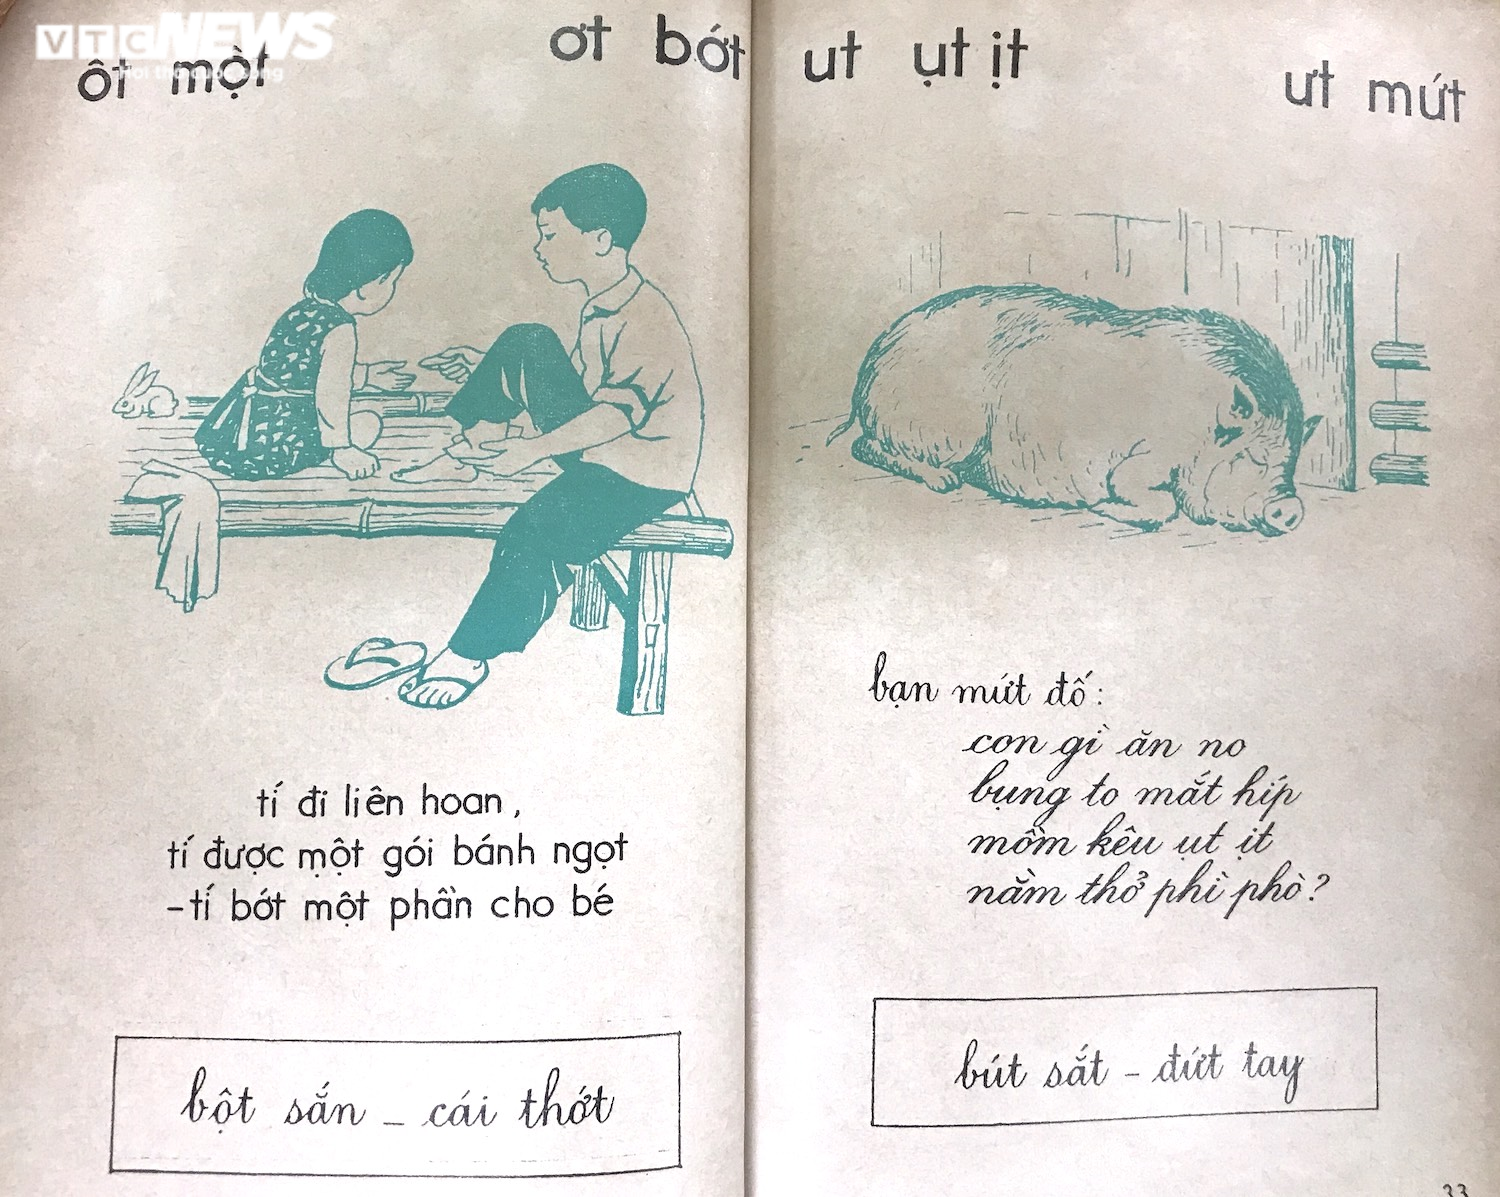 VTC NEWS
Hơi thở cuộc sống
ôt một
ơt bớt
tí đi liên hoan,
tí được một gói bánh ngọt
– tí bớt một phần cho bé
bột sắn – cái thớt
ut ụt ịt
ưt mứt
bạn mứt đố:
con gì ăn no
bụng to mắt híp
mồm kêu ụt ịt
nằm thở phì phò?
bút sắt – đứt tay
33